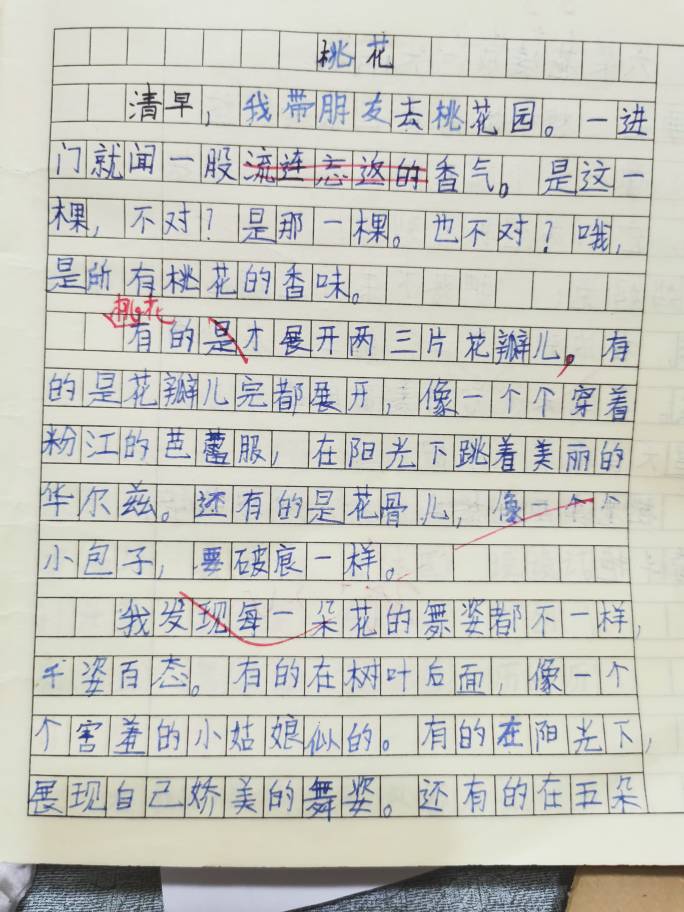 桃花
清早，我带朋友去桃花园。一进
门就闻一股流连忘返的香气。是这一
棵，不对？是那一棵。也不对？哦，
是所有桃花的香味。
桃花
有的是才展开两三片花瓣儿。有
的是花瓣儿完都展开，像一个个穿着
粉江的芭蕾服，在阳光下跳着美丽的
华尔兹。还有的是花骨儿，像一个个
小包子，要破痕一样。
我发现每一朵花的舞姿都不一样，
千姿百态。有的在树叶后面，像一个
个害羞的小姑娘似的。有的在阳光下，
展现自己娇美的舞姿。还有的在五朵